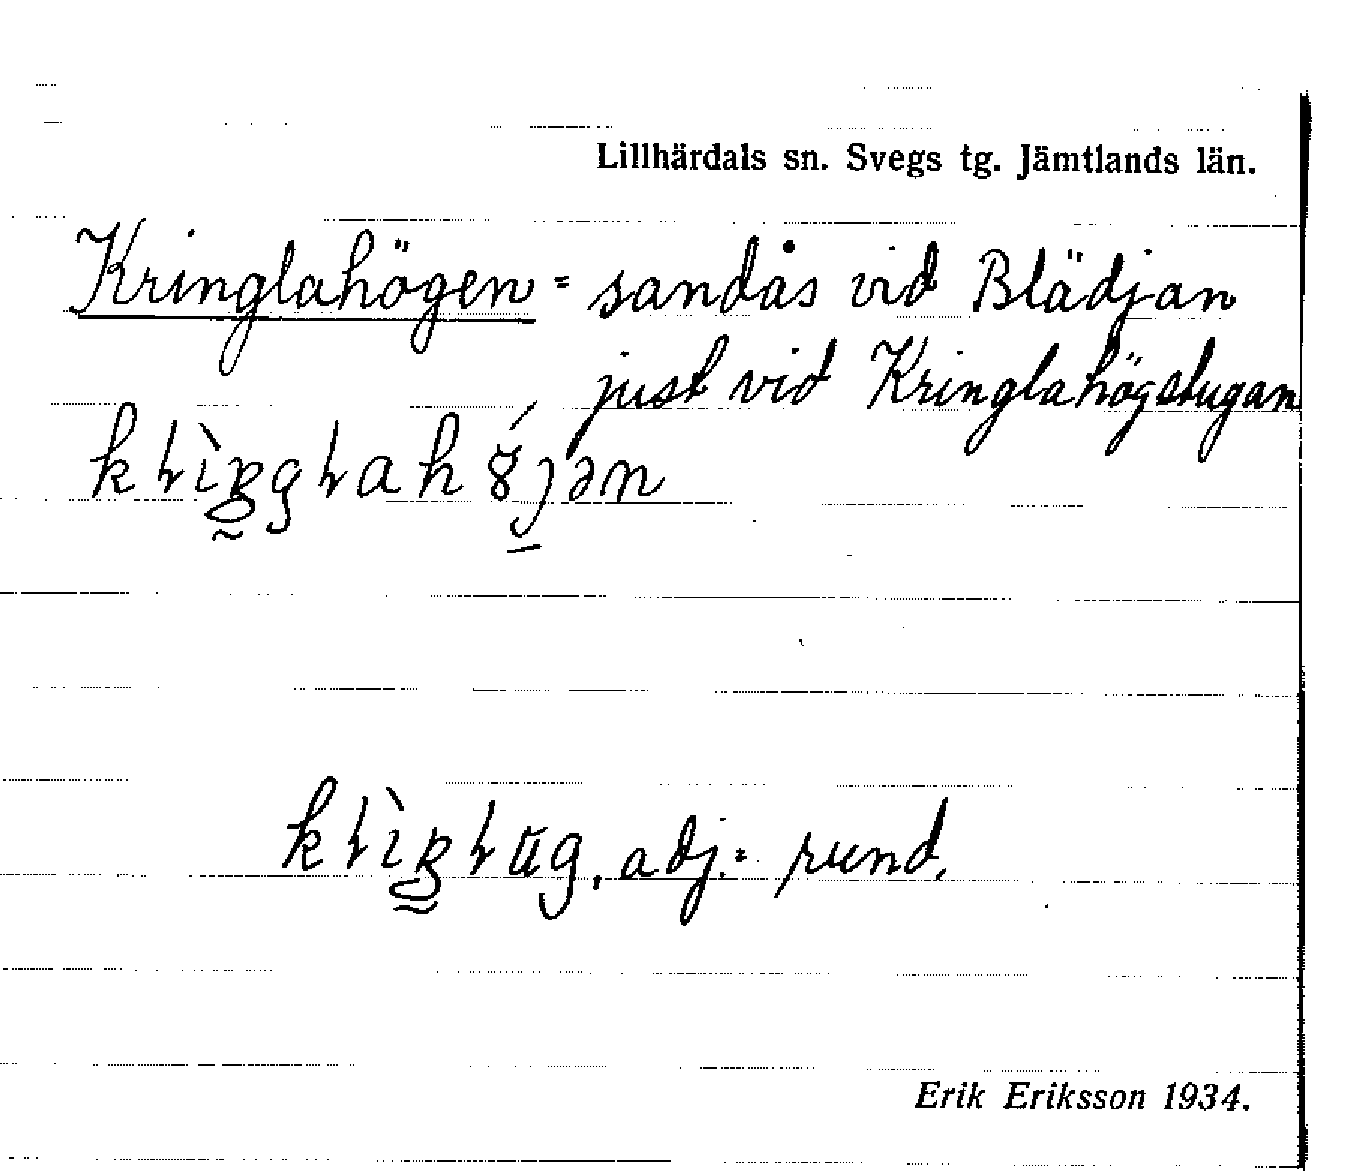 Lillhärdals sn. Svegs tg. Jämtlands län.
Kringlahögen = sandås vid Blädjan
just vid Kringlahögstugan
adj. = rund.
Erik Eriksson 1934.